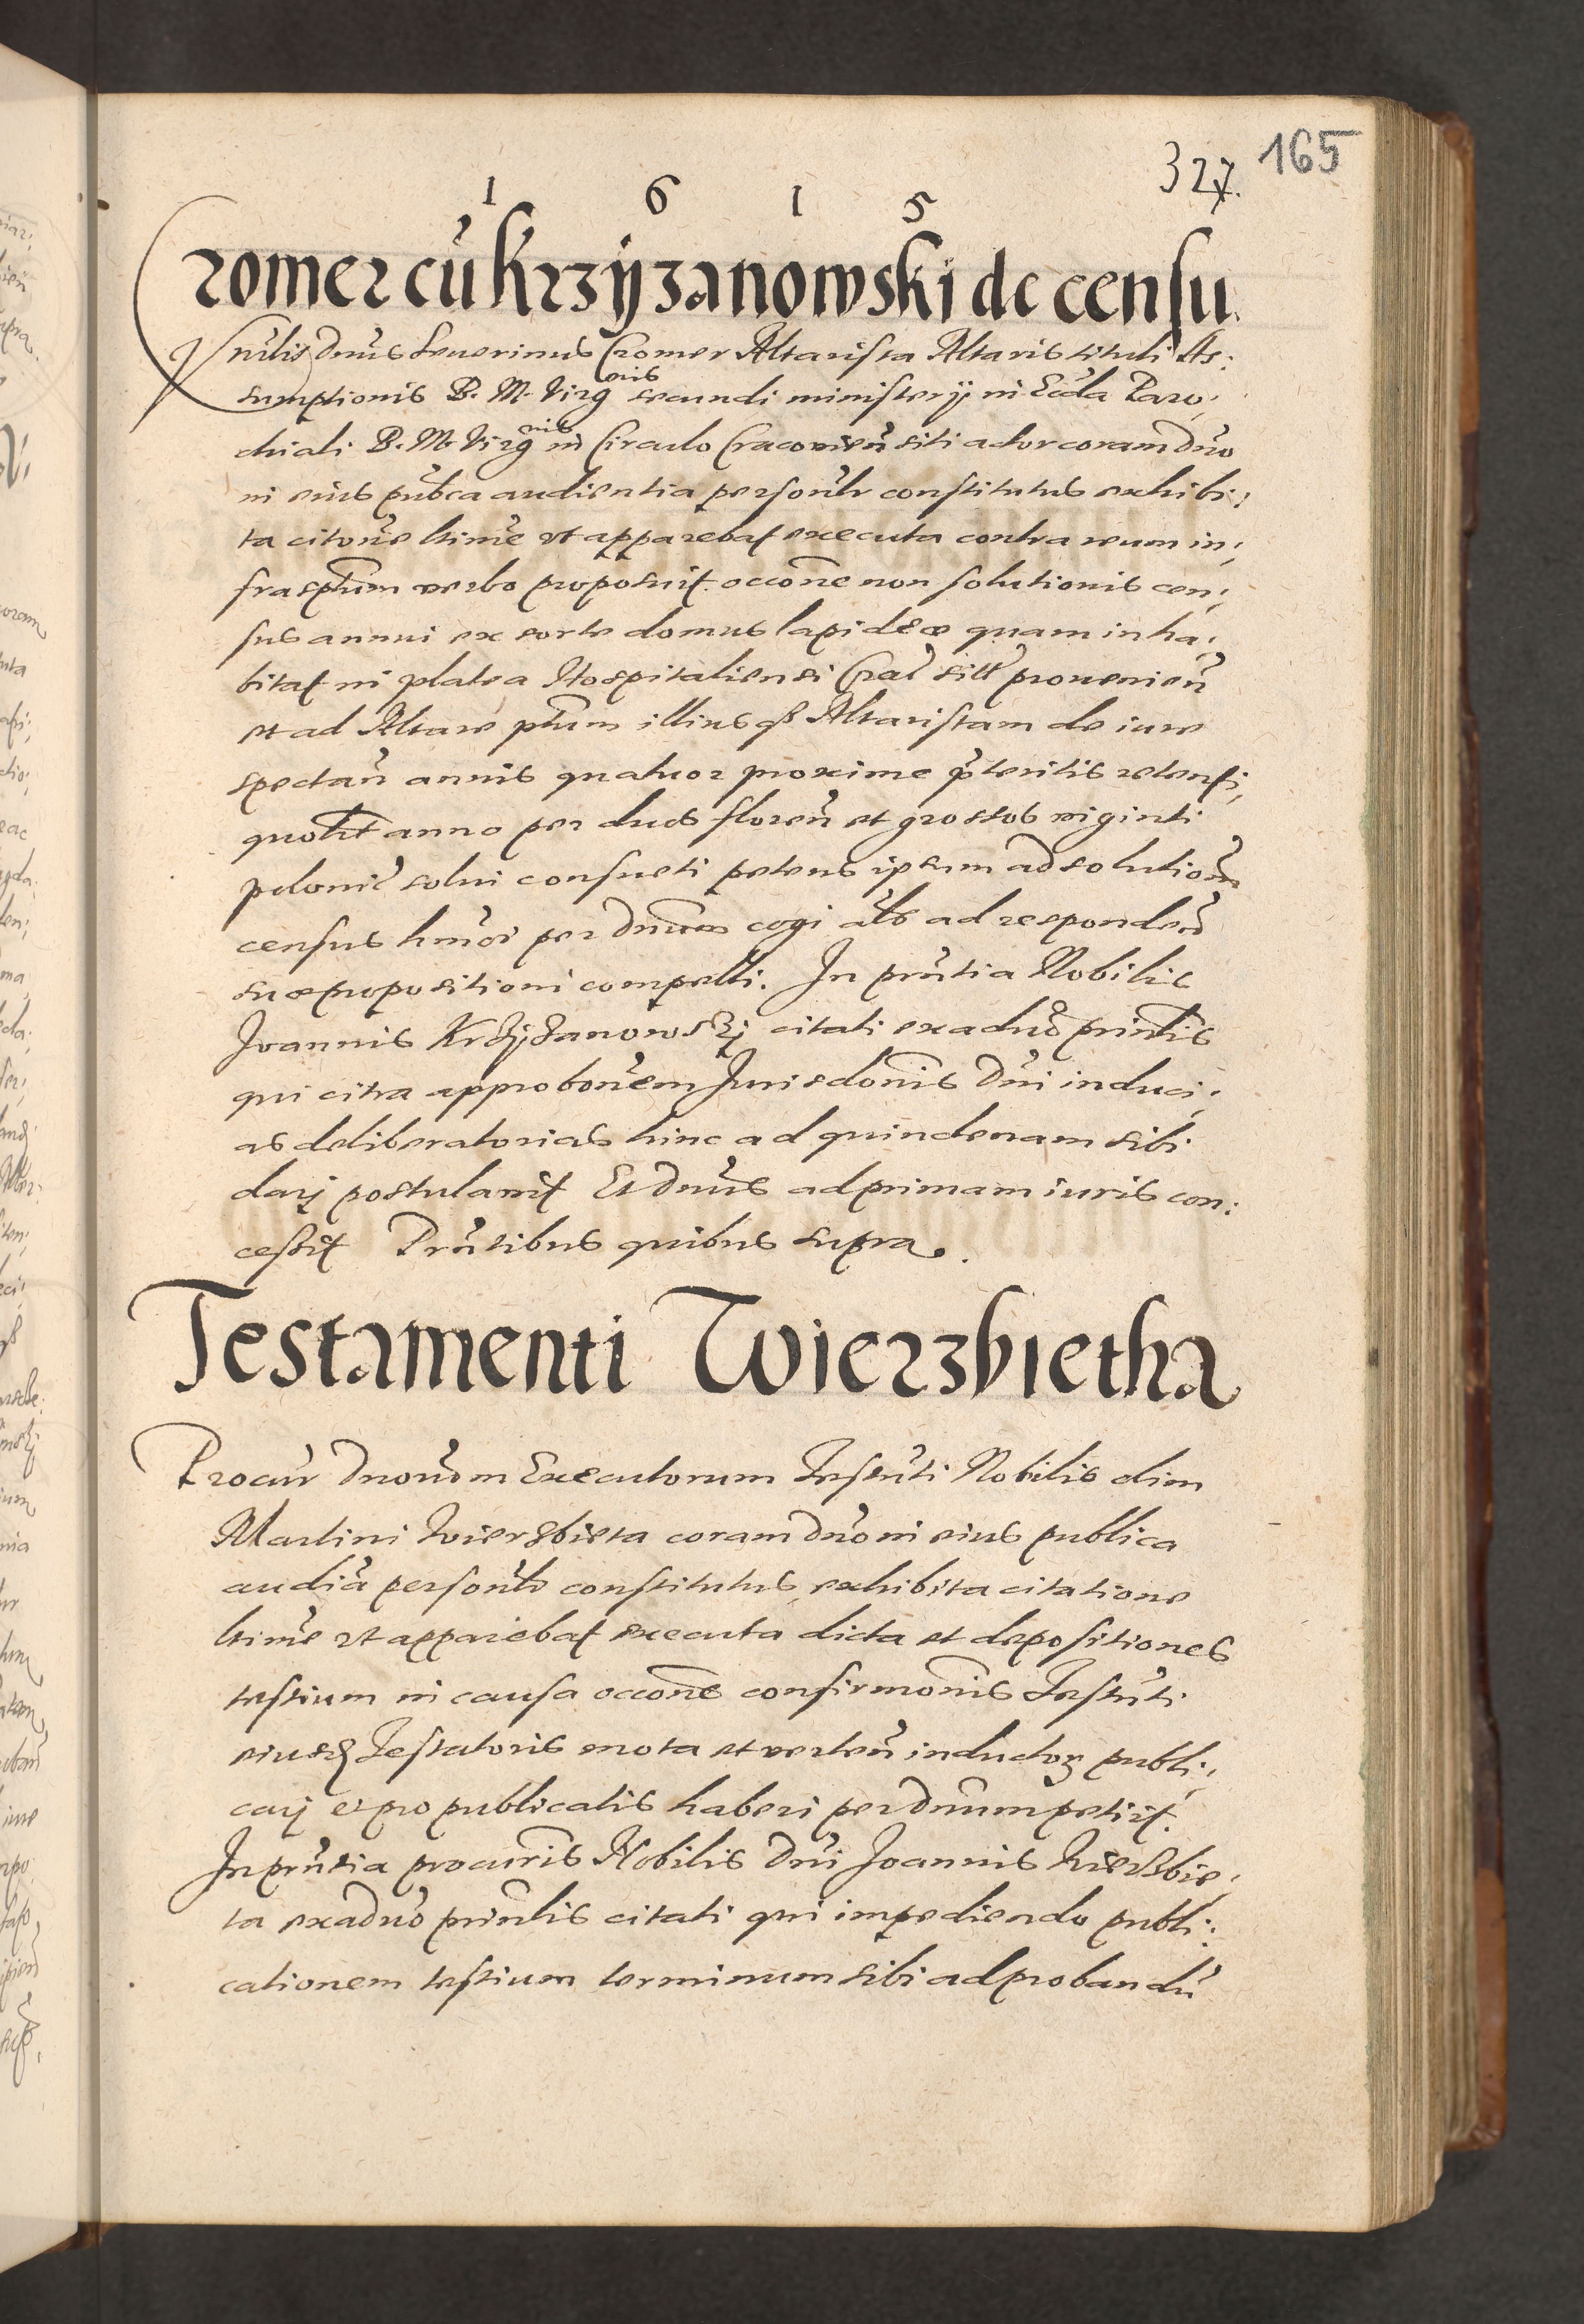 327. 165
1 6 1 5
Cromer cū Krzyżanowski de censu.
Vn̄lis Dn̄us Seuerinus Cromer Altarista Altaris tituli As:
sumptionis B. M. Virgnis secundi ministerij in Eccla Paro:
chiali B. M. Virgnis in Circulo Cracovien̄ siti actor coram Dn̄o
in eius pub̄ca audientia personl̄r constitutus exhibi:
ta citon̄e ltime vt apparebat executa contra reum in:
frasptum verbo proposuit. occōne non solutionis cen:
sus annui ex sorte domus lapideæ quam inha:
bitat in platea Hospitaliensi Crac̄ sitæ prouenien̄
et ad Altare ptum illius qȝ Altaristam de iure
spectan̄ annis quatuor proxime p̄teritis retenti,
quolt anno per duos floren̄ et grossos viginti
polonic̄ solui consueti petens ipsum ad solutiōm
census hmōi per Dnum cogi als̄ ad responden̄
suæ propositioni compelli. In pn̄tia Nobilis
Joannis Krzyżanowskj citati ex aduo prin̄lis
qui citra approbonem Jurisdōnis Dn̄i induci:
as deliberatorias hinc ad quindenam sibi
darj postulauit Et Dn̄us ad primam iuris con:
cessit Pn̄tibus quibus supra.
Testamenti Wierzbietha
Procur Dnorum Executorum Testn̄ti Nobilis olim
Martini Wierzbieta coram Dn̄o in eius publica
audia personl̄r constitutus exhibita citatione
ltime vt apparebat executa dicta et depositiones
testium in causa occōne confirmōnis Testn̄ti
eiusd Testatoris mota et verten̄ inductoȝ publi:
carj et pro publicatis haberi per Dnum petijt.
In pn̄tia procuris Nobilis Dn̄i Joannis Wierzbie:
ta ex aduo prin̄lis citati qui impediendo publi:
cationem testium terminum sibi ad probandū